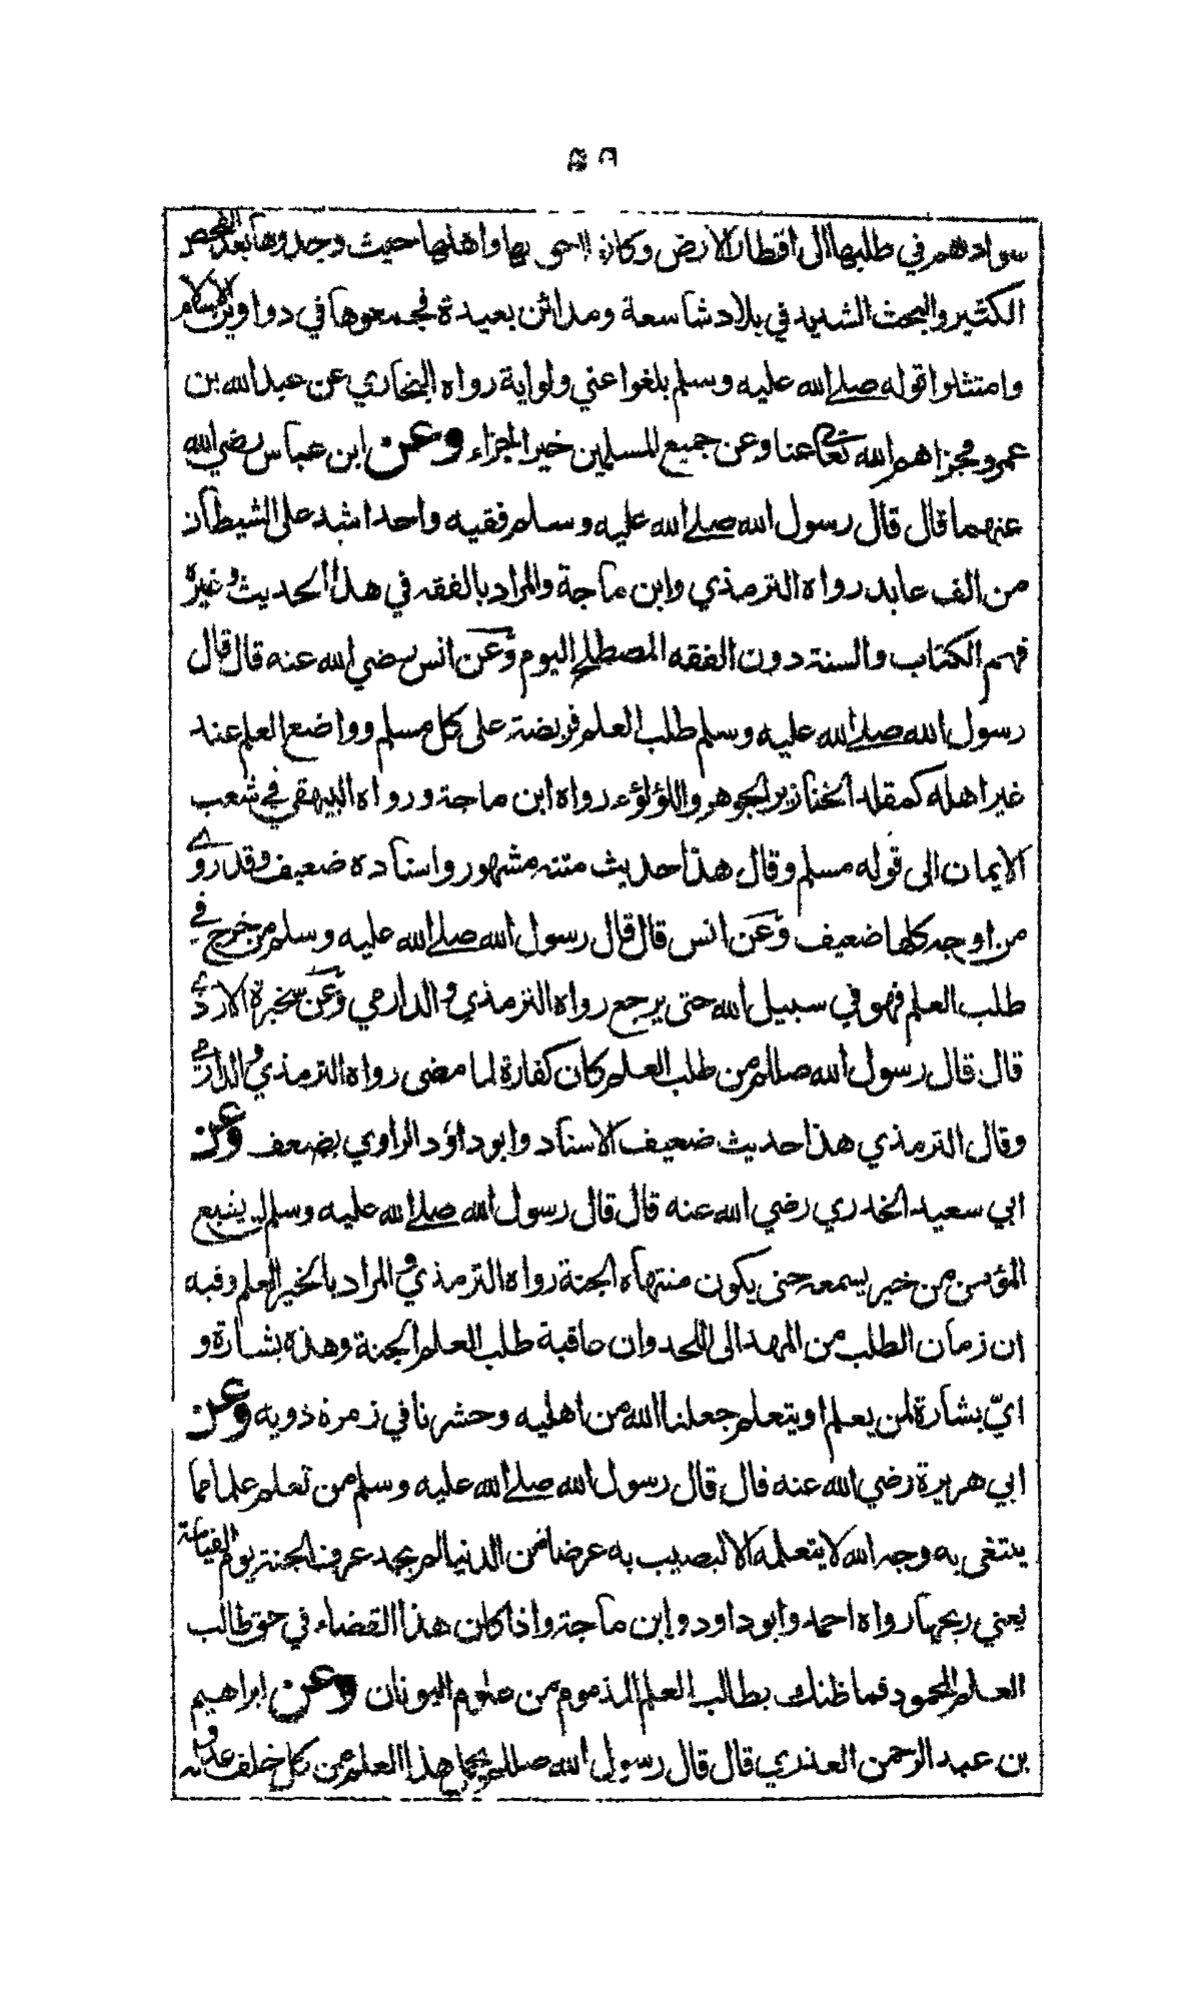 ٥٦
سوادهم في طلبها الى اقطار الارض وكانوا احق بها واهلها حيث وجدوها بعد الفحص
الكثير والبحث الشديد في بلاد شاسعة ومدائن بعيدة فجمعوها في دواوين الاسلام
وامتثلوا قوله صلى الله عليه وسلم بلغوا عني ولو اية رواه البخاري عن عبد الله بن
عمرو فجزاهم الله تعالى عنا وعن جميع المسلمين خير الجزاء وعن ابن عباس رضي الله
عنهما قال قال رسول الله صلى الله عليه وسلم فقيه واحد اشد على الشيطان
من الف عابد رواه الترمذي وابن ماجة والمراد بالفقه في هذا الحديث وغيره
فهم الكتاب والسنة دون الفقه المصطلح اليوم وعن انس رضي الله عنه قال قال
رسول الله صلى الله عليه وسلم طلب العلم فريضة على كل مسلم وواضع العلم عند
غير اهله كمقلد الخنازير الجوهر واللؤلؤ رواه ابن ماجة ورواه البيهقي في شعب
الايمان الى قوله مسلم وقال هذا حديث متنه مشهور واسناده ضعيف وقد روي
من اوجه كلها ضعيف وعن انس قال قال رسول الله صلى الله عليه وسلم من خرج في
طلب العلم فهو في سبيل الله حتى يرجع رواه الترمذي والدارمي وعن سخبرة الازدي
قال قال رسول الله صللم من طلب العلم كان كفارة لما مضى رواه الترمذي والدارمي
وقال الترمذي هذا حديث ضعيف الاسناد وابو داؤد الراوي يضعف وعن
ابي سعيد الخدري رضي الله عنه قال قال رسول الله صلى الله عليه وسلم لن يشبع
المؤمن من خير يسمعه حتى يكون منتهاه الجنة رواه الترمذي والمراد بالخير العلم وفيه
ان زمان الطلب من المهد الى اللحد وان عاقبة طلب العلم الجنة وهذه بشارة و
ايّ بشارة لمن يعلم او يتعلم جعلنا الله من اهليه وحشرنا في زمرة ذويه وعن
ابي هريرة رضي الله عنه قال قال رسول الله صلى الله عليه وسلم من تعلم علما مما
يبتغى به وجه الله لا يتعلمه الا ليصيب به عرضا من الدنيا لم يجد عرف الجنة يوم القيامة
يعني ريحها رواه احمد وابو داود وابن ماجة واذا كان هذا القضاء في حق طالب
العلم المحمود فما ظنك بطالب العلم المذموم من علوم اليونان وعن ابراهيم
بن عبد الرحمن العذري قال قال رسول الله صللم يحمل هذا العلم من كل خلف عدوله